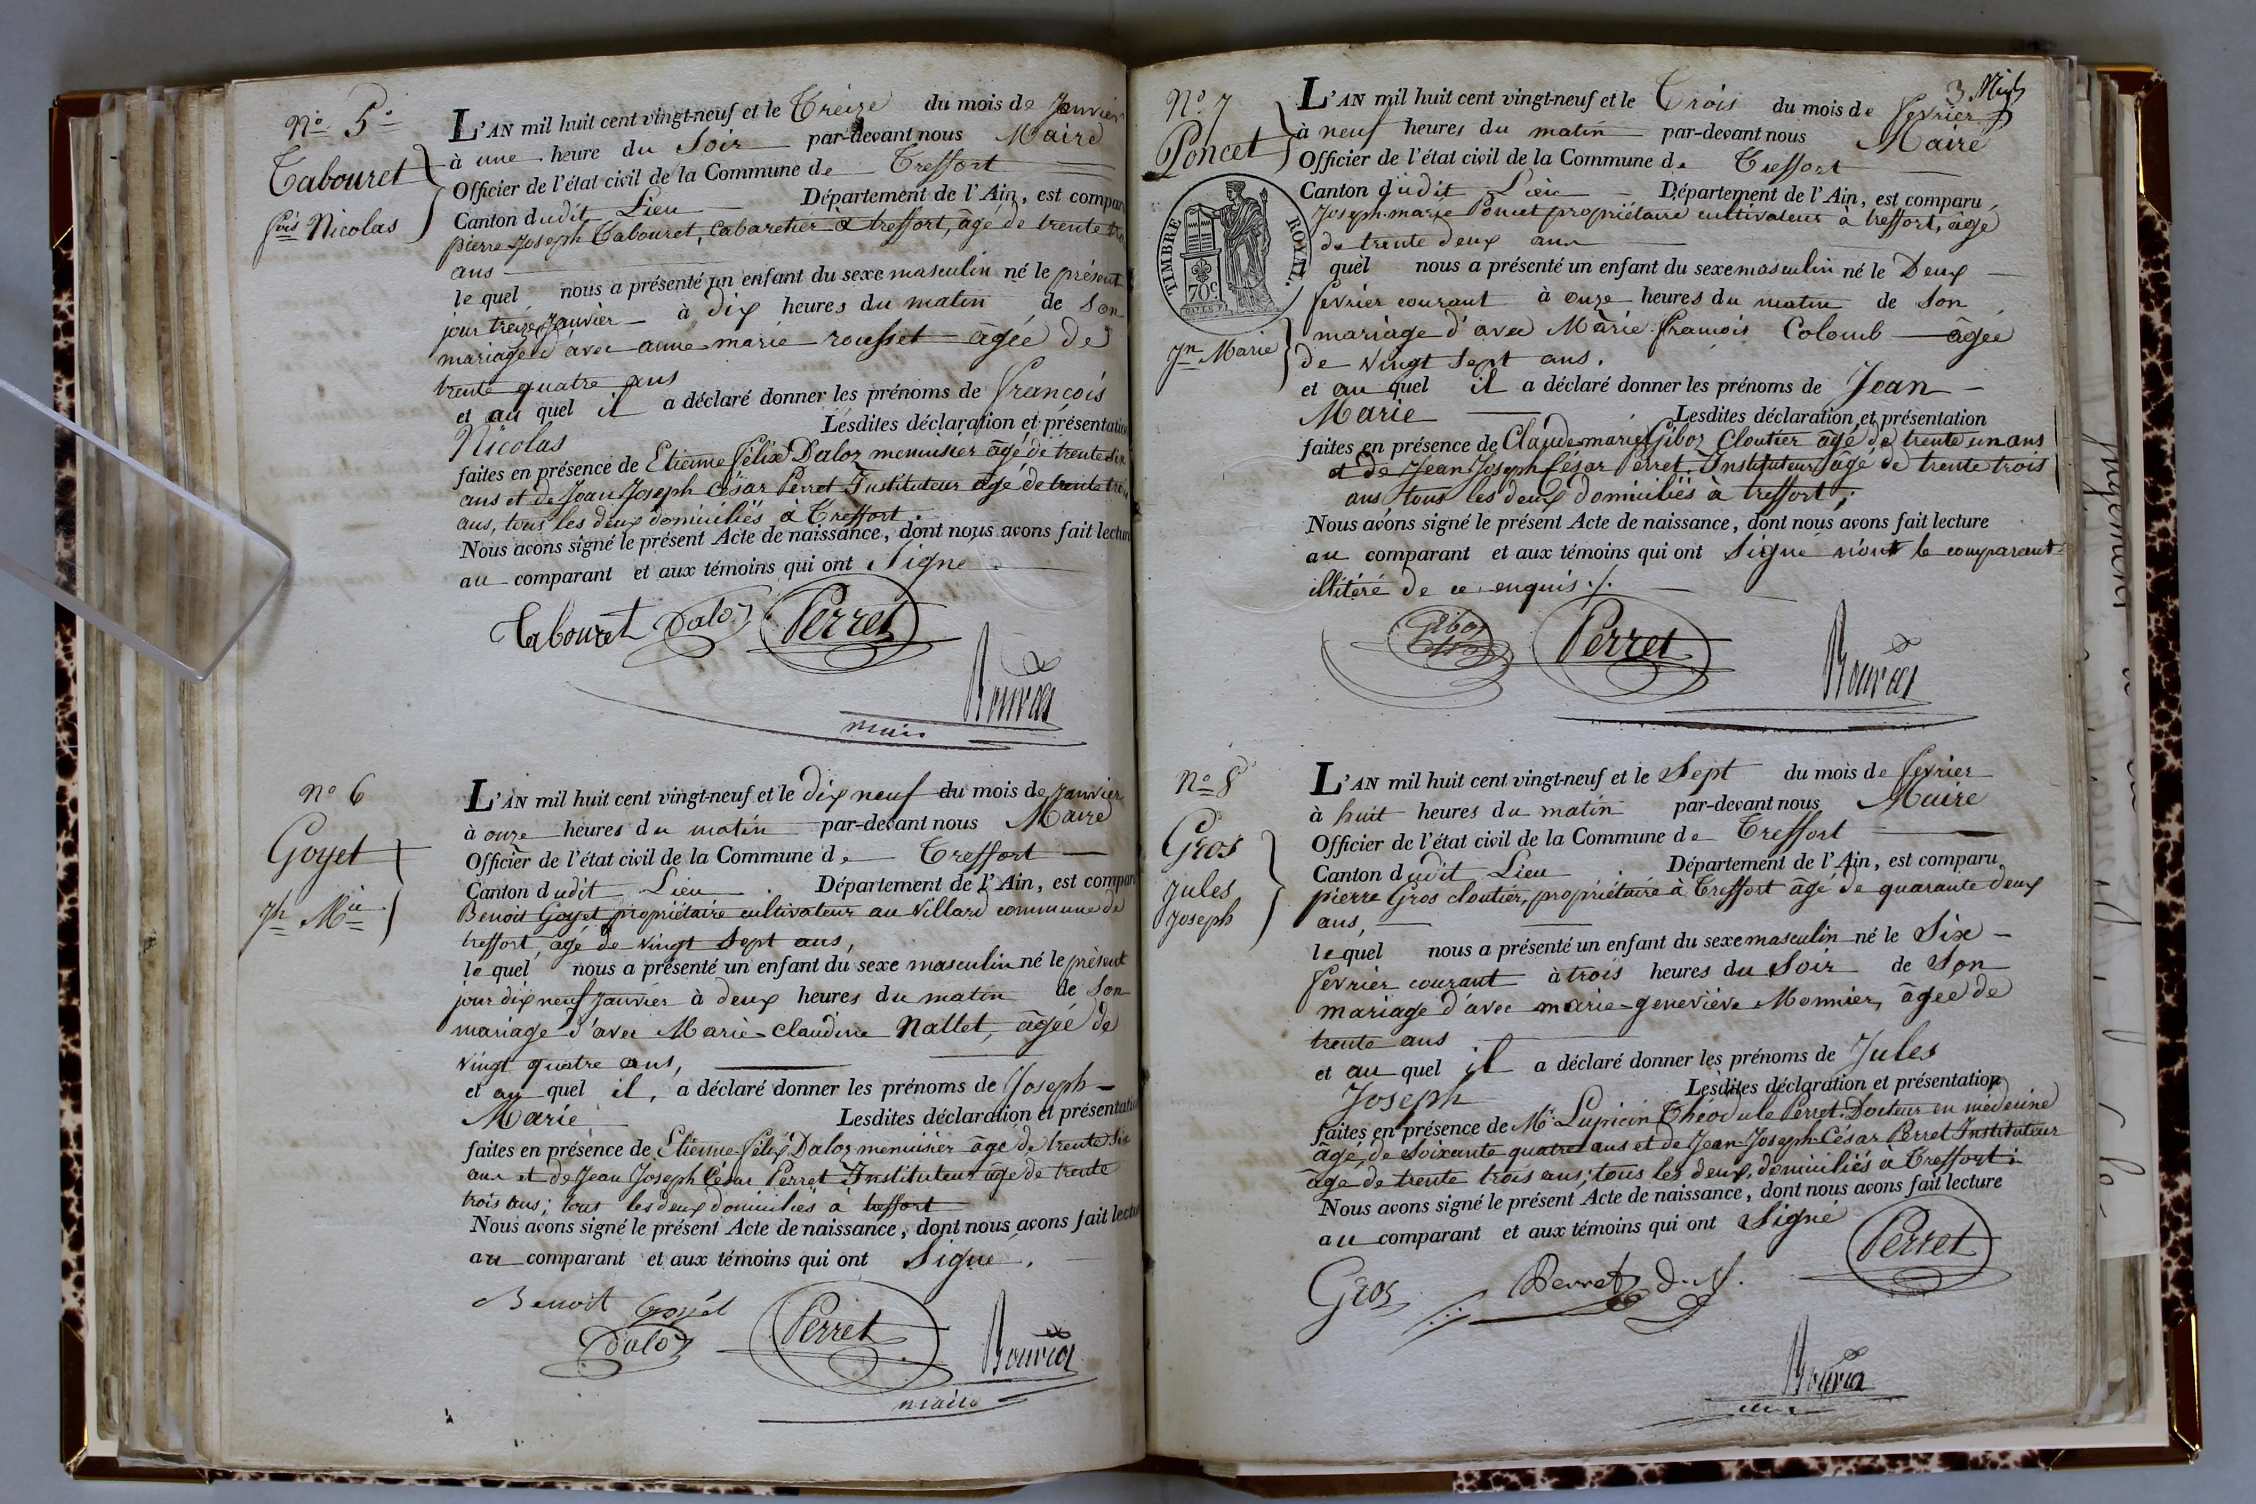 N° 5
Tabouret
fois Nicolas
L'AN mil huit cent vingt-neuf et le Treize du mois de Janvier
à une heure du Soir par-devant nous Maire
Officier de l'état civil de la Commune de Treffort
Canton dudit Lieu Département de l'Ain, est comparu
pierre Joseph Tabouret, Cabaretier à treffort, âgé de trente
ans
le quel nous a présenté un enfant du sexe masculin né le présent
jour treize Janvier à dix heures du matin de Son
mariage d'avec anne marie rousset âgée de
trente quatre ans
et au quel il a déclaré donner les prénoms de François
Nicolas Lesdites déclaration et présentation
faites en présence de Etienne félix Daloz menuisier âgé de trente Six
ans et de Jean Joseph César Perret Instituteur âgé de trente trois
ans, tous les deux domiciliés à Treffort.
Nous avons signé le présent Acte de naissance, dont nous avons fait lecture
au comparant et aux témoins qui ont Signé
Tabouret Daloz Perret
Bouvier
maire
N° 6
Goyet
Jh Mie
L'AN mil huit cent vingt-neuf et le dix neuf du mois de Janvier
à onze heures du matin par-devant nous Maire
Officier de l'état civil de la Commune de Treffort
Canton dudit Lieu Département de l'Ain, est comparu
Benoit Goyet propriétaire cultivateur au Villard commune de
treffort, âgé de vingt Sept ans,
le quel nous a présenté un enfant du sexe masculin né le présent
jour dix neuf Janvier à deux heures du matin de Son
mariage d'avec Marie-Claudine Nallet, âgée de
vingt quatre ans,
et au quel il, a déclaré donner les prénoms de Joseph-
Marie Lesdites déclaration et présentation
faites en présence de Etienne félix Daloz menuisier âgé de trente Six
ans et de Jean Joseph César Perret Instituteur âgé de trente
trois ans; tous les deux domiciliés à treffort
Nous avons signé le présent Acte de naissance, dont nous avons fait lecture
au comparant et aux témoins qui ont Signé.
Benoit Goyet
Daloz Perret Bouvier
maire
N° 7
Poncet
TIMBRE ROYAL.
70c.
Jn Marie
L'AN mil huit cent vingt-neuf et le Trois du mois de fevrier
à neuf heures du matin par-devant nous Maire
Officier de l'état civil de la Commune de Treffort
Canton dudit Lieu Département de l'Ain, est comparu
Joseph-marie Poncet propriétaire cultivateur à treffort, âgé
de trente deux ans
quel nous a présenté un enfant du sexe masculin né le Deux
fevrier courant à onze heures du matin de Son
mariage d'avec Marie françois Colomb âgée
de vingt Sept ans.
et au quel il a déclaré donner les prénoms de Jean
Marie Lesdites déclaration et présentation
faites en présence de Claude marie Giboz Cloutier âgé de trente un ans
et de Jean Joseph César Perret Instituteur âgé de trente trois
ans tous les deux domiciliés à treffort;
Nous avons signé le présent Acte de naissance, dont nous avons fait lecture
au comparant et aux témoins qui ont Signé non le comparant
illitéré de ce enquis ./.
Giboz Perret
Bouvier
N° 8
Gros
Jules
Joseph
L'AN mil huit cent vingt-neuf et le Sept du mois de fevrier
à huit heures du matin par-devant nous Maire
Officier de l'état civil de la Commune de Treffort
Canton dudit Lieu Département de l'Ain, est comparu
pierre Gros cloutier, propriétaire à Treffort âgé de quarante deux
ans,
le quel nous a présenté un enfant du sexe masculin né le Six
fevrier courant à trois heures du Soir de Son
mariage d'avec marie-geneviève Monnier, âgée de
trente ans
et au quel il a déclaré donner les prénoms de Jules
Joseph Lesdites déclaration et présentation
faites en présence de Mr Lupicin Théodule Perret Docteur en médecine
âgé de Soixante quatre ans et de Jean-Joseph-César Perret Instituteur
âgé de trente trois ans; tous les deux domiciliés à Treffort;
Nous avons signé le présent Acte de naissance, dont nous avons fait lecture
au comparant et aux témoins qui ont Signé
Gros Perret D. M. Perret
Bouvier